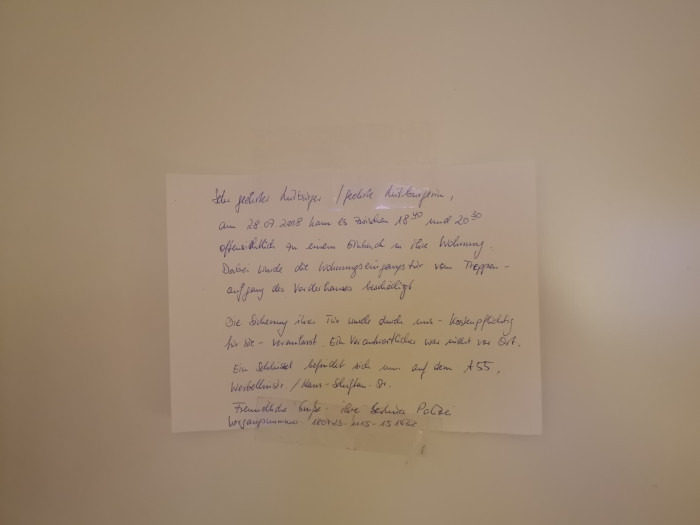 Sehr geehrter Mitbürger / geehrte Mitbürgerin,
am 28.07.2018 kam es zwischen 18 40 und 20 30
offensichtlich zu einem Einbruch in ihre Wohnung.
Dabei wurde die Wohnungseingangstür vom Treppen-
aufgang des Vorderhauses beschädigt
Die Sicherung ihrer Tür wurde durch uns - Kostenpflichtig
für Sie - veranlasst. Ein Verantwortlicher war nicht vor Ort.
Ein Schlüssel befindet sich nun auf dem A55,
Freundliche Grüße - ihre Berliner Polizei
Vorgangsnummer